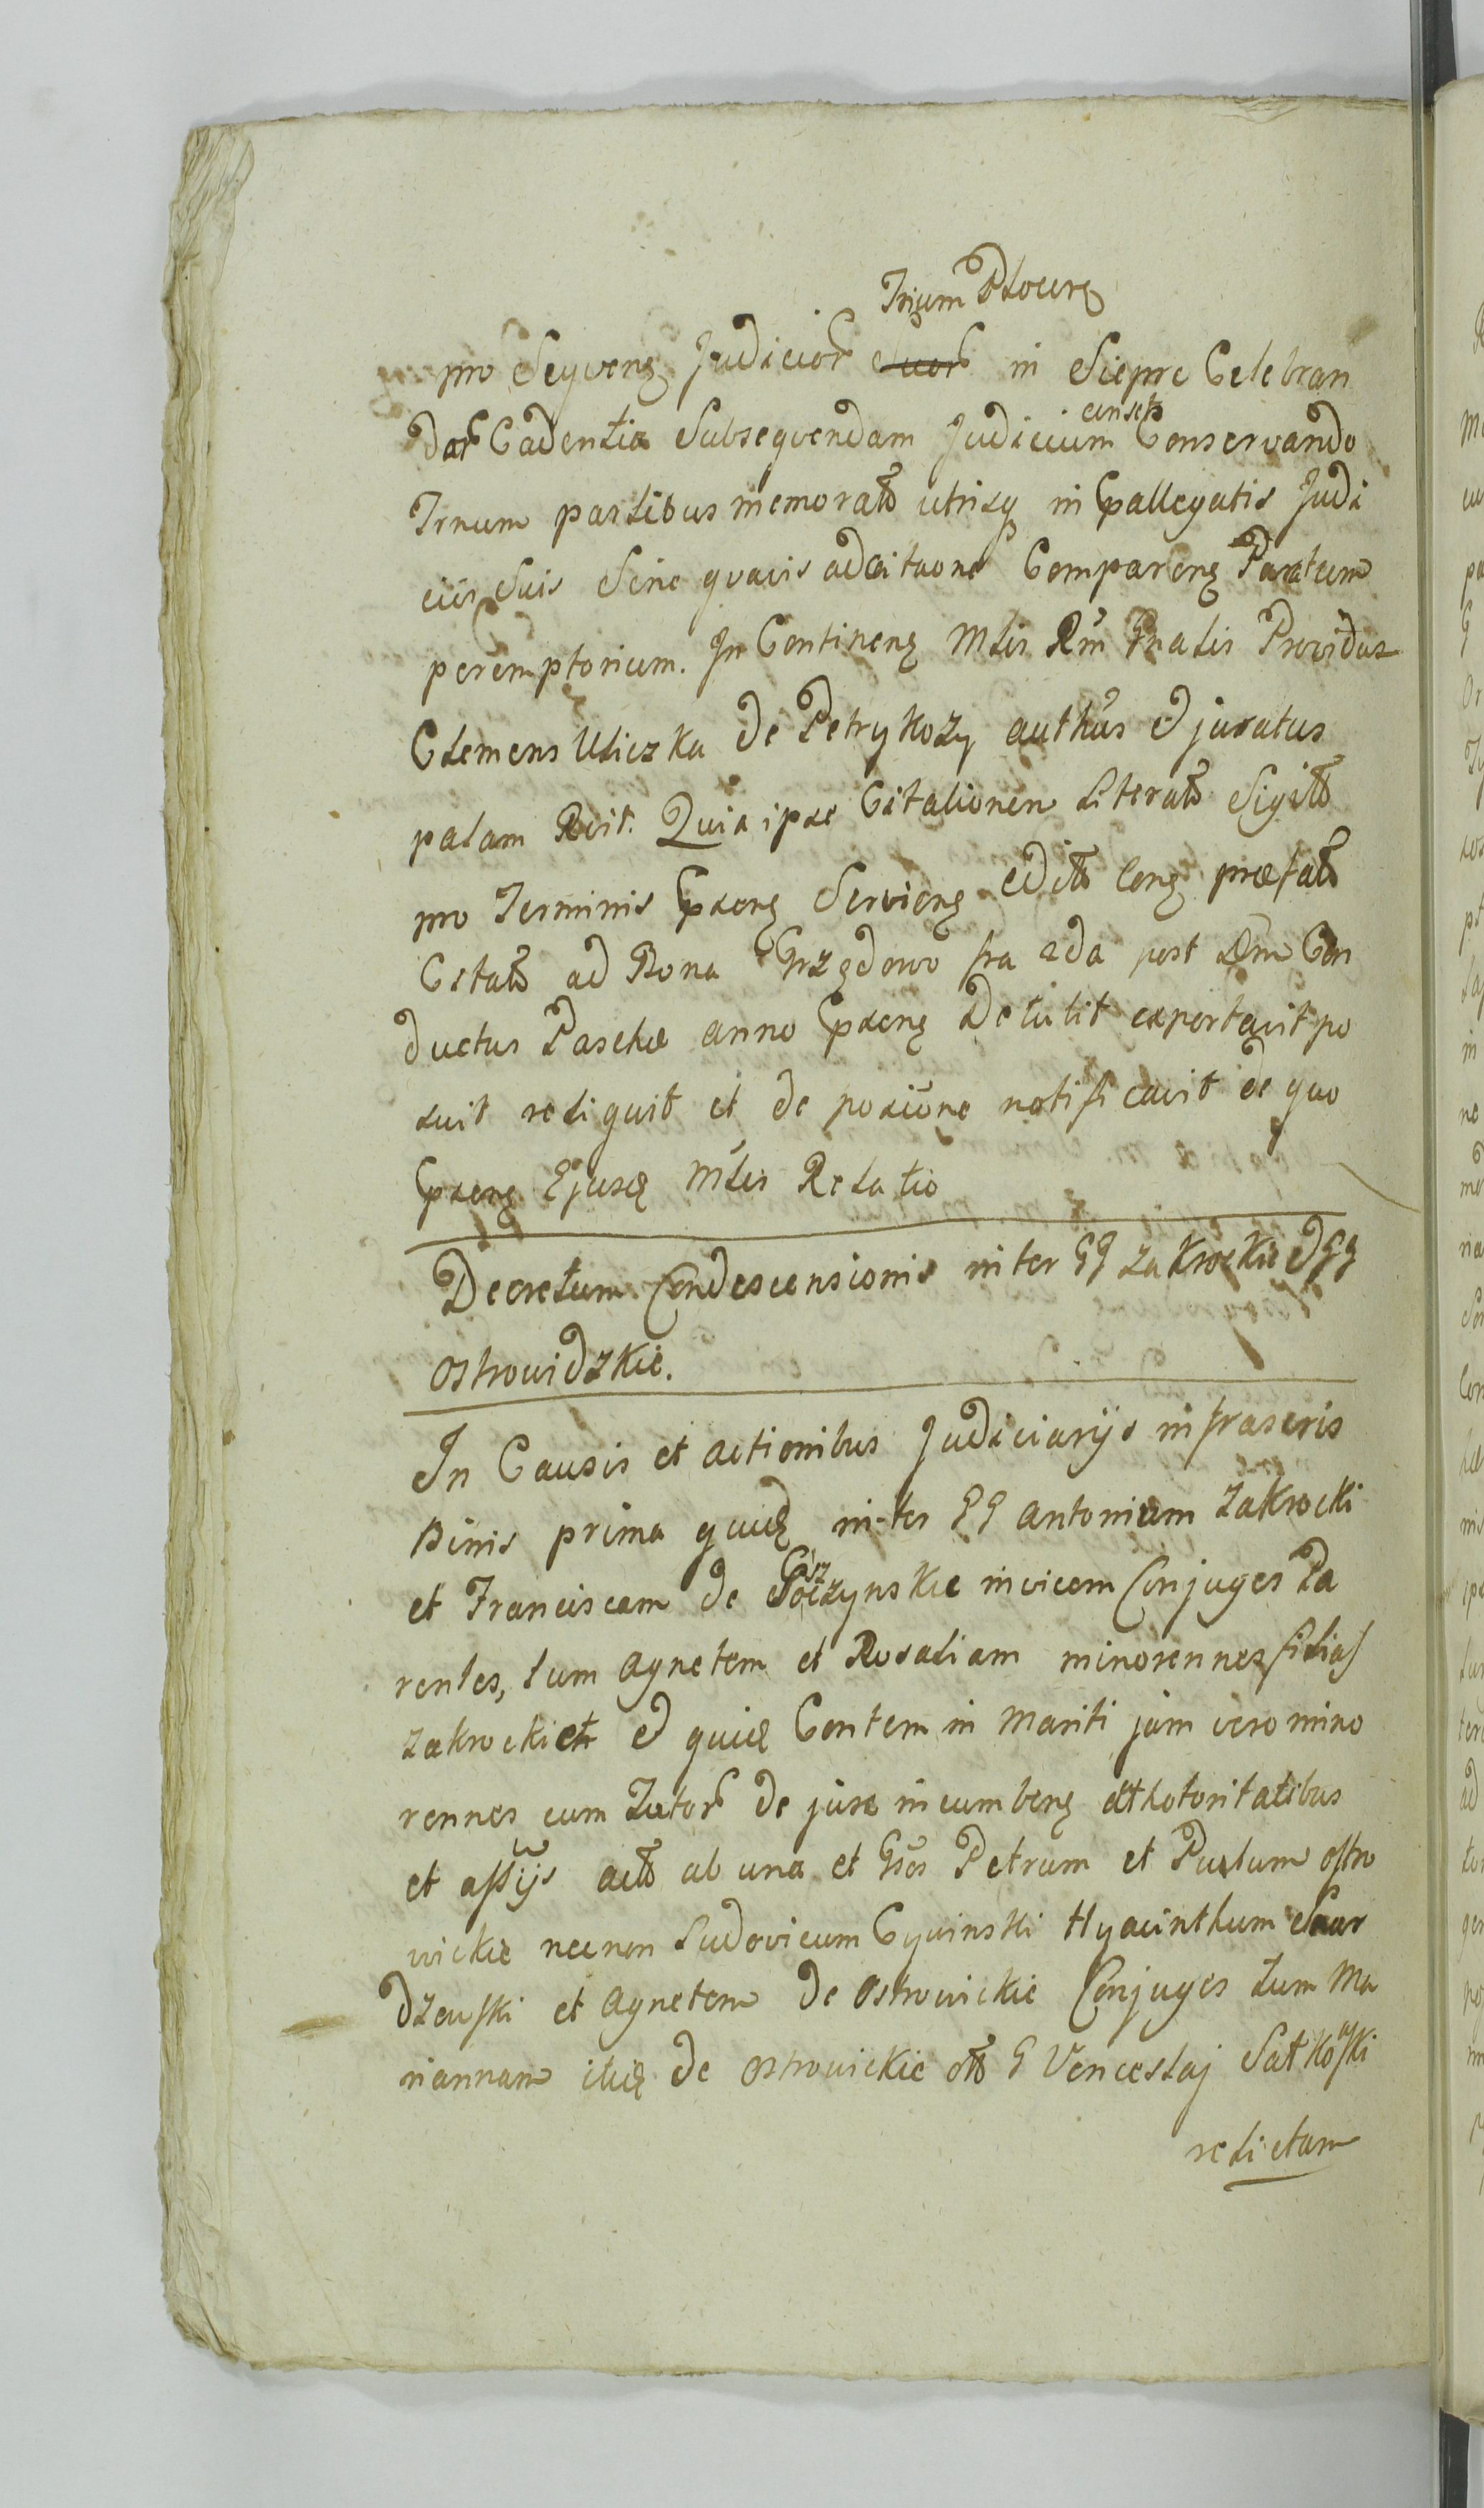 Trium Plocens
pro Seqvens Judicior Suor in Sieprc Celebran
dar Cadentia Subseqvendam Judicium censets Conservando
Trnum partibus memorats utrisq in Ppallegatis Judi
ciis Suis Sine qvavis adcitaone Comparens Paratum
peremptorium. In Continens Mlis Rm Pnalis Providus
Clemens Uliczka de Petrykozy authus et juratus
palam Rcit. Quia ipse Citationem Literats Sigilts
pro Terminis Ppsens Serviens edits Cons præfats
Citats ad Bona Grzędowo fra 2da post Dm Con
ductus Paschæ anno Ppsens Detulit exportavit po
suit reliquit et de posiõne notificavit de quo
Ppsens Ejusd Mlis Relatio
Decretum Condescensionis inter GG Zakrockie et GG
Ostrowidzkie.
In Causis et actionibus Judiciarijs infrascris
Binis prima quid inter GG Antonium Zakrocki
et Franciscam de Soczynskie invicem Conjuges Pa
rentes, tum Agnetem et Rosaliam minorennes filias
Zakrockiet et quid Contem in Mariti jam vero mino
rennes cum Tutor de jure incumbens authotoritatibus
et assijs acts ab una et Gsos Petrum et Paulum Ostro
wickie necnon Ludovicum Cywinski Hyacinthum Skar
dzewski et Agnetem de Ostrowickie Conjuges tum Ma
riannam itid de Ostrowickie olts G Venceslaj Satkoski
relictam